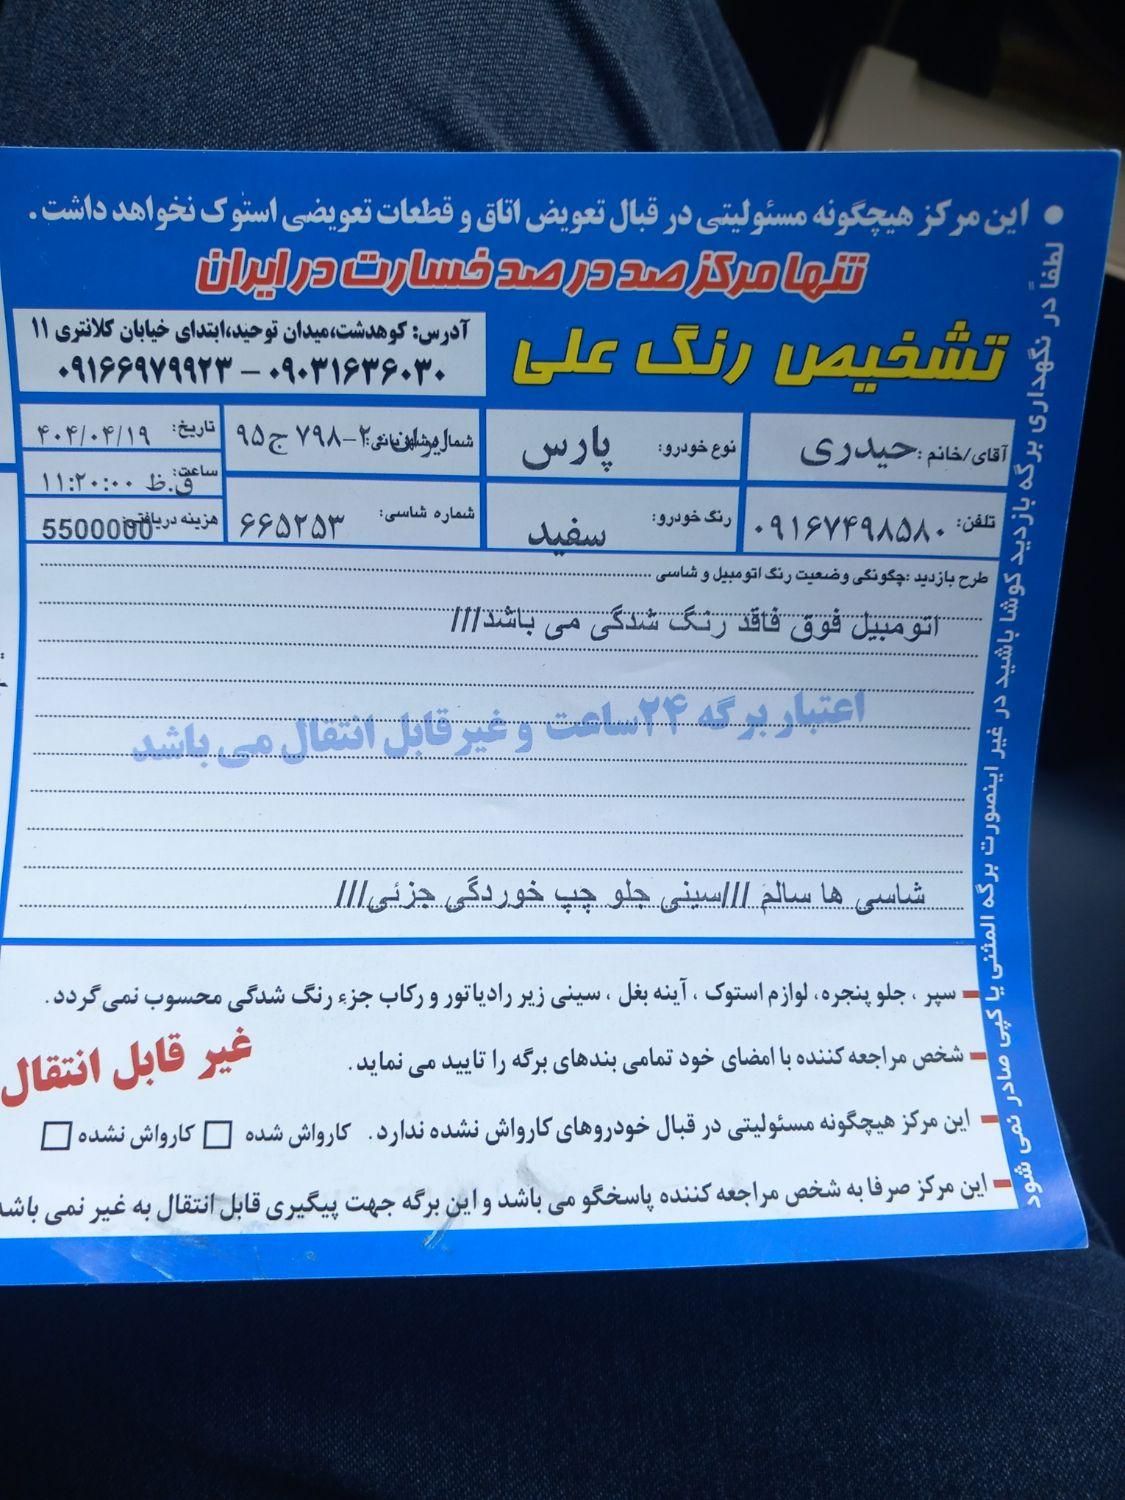 ● این مرکز هیچگونه مسئولیتی در قبال تعویض اتاق و قطعات تعویضی استوک نخواهد داشت.
تنها مرکز صد در صد خسارت در ایران
تشخیص رنگ علی
آدرس: کوهدشت،میدان توحید،ابتدای خیابان کلانتری ۱۱
۰۹۰۳۱۶۳۶۰۳۰ – ۰۹۱۶۶۹۷۹۹۲۳
آقای/خانم: حیدری
نوع خودرو: پارس
ایران ۲-۷۹۸ ج ۹۵
تاریخ: ۴۰۴/۰۴/۱۹
ساعت: ۱۱:۲۰:۰۰ ق.ظ
تلفن: ۰۹۱۶۷۴۹۸۵۸۰
رنگ خودرو: سفید
شماره شاسی: ۶۶۵۲۵۳
هزینه دریافتی: 5500000
طرح بازدید :چگونگی وضعیت رنگ اتومبیل و شاسی
اتومبیل فوق فاقد رنگ شدگی می باشد///
اعتبار برگه ۲۴ساعت و غیرقابل انتقال می باشد
شاسی ها سالم ///سینی جلو چپ خوردگی جزئی///
– سپر ، جلو پنجره، لوازم استوک ، آینه بغل ، سینی زیر رادیاتور و رکاب جزء رنگ شدگی محسوب نمی گردد.
– شخص مراجعه کننده با امضای خود تمامی بندهای برگه را تایید می نماید.
غیر قابل انتقال
– این مرکز هیچگونه مسئولیتی در قبال خودروهای کارواش نشده ندارد. کارواش شده □ کارواش نشده □
– این مرکز صرفا به شخص مراجعه کننده پاسخگو می باشد و این برگه جهت پیگیری قابل انتقال به غیر نمی باشد
لطفاً در نگهداری برگه بازدید کوشا باشید در غیر اینصورت برگه المثنی یا کپی صادر نمی شود